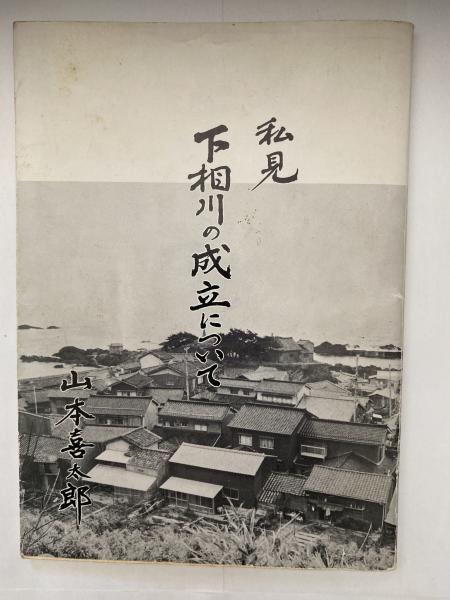 私見
下相川の成立について
山本喜太郎